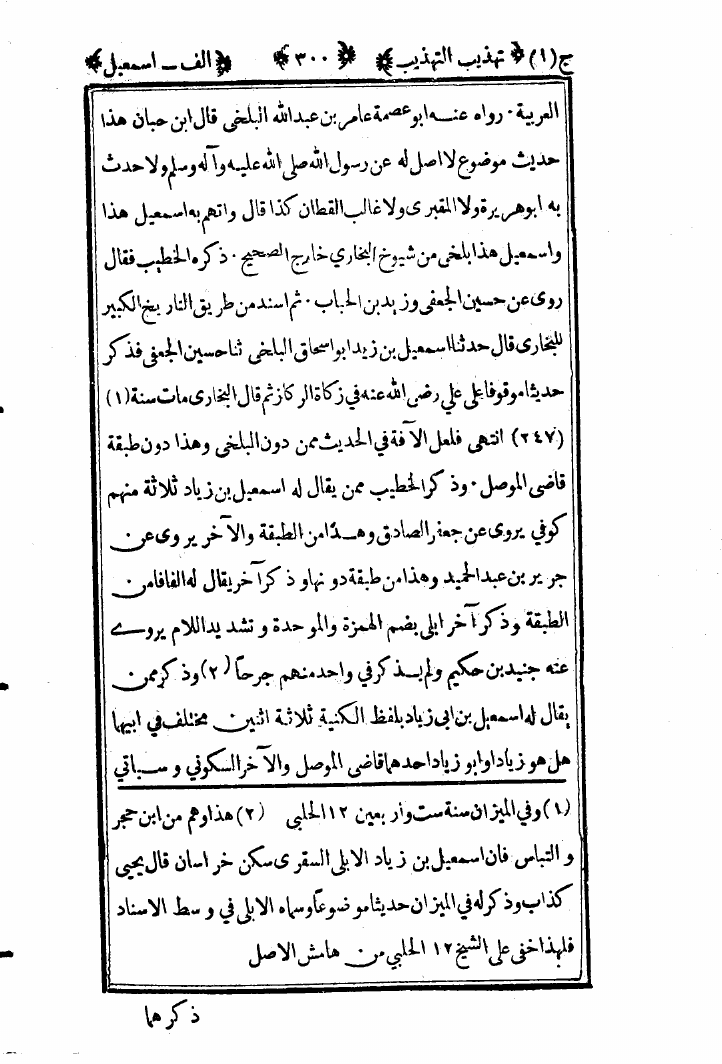 ج(١) ﴿تهذيب التهذيب﴾ ﴿٣٠٠﴾ ﴿الف ـ اسمعيل﴾
العربية . رواه عنه ابو عصمة عامر بن عبد الله البلخى قال ابن حبان هذا
حديث موضوع لا اصل له عن رسول الله صلى الله عليه وآله وسلم ولا حدث
به ابو هريرة ولا المقبرى ولا غالب القطان كذا قال واتهم به اسمعيل هذا
واسمعيل هذا بلخى من شيوخ البخاري خارج الصحيح . ذكره الخطيب فقال
روى عن حسين الجعفى وزيد بن الحباب . ثم اسند من طريق التاريخ الكبير
للبخارى قال حدثنا اسمعيل بن زيد ابو اسحاق البلخى ثنا حسين الجعفى فذكر
حديثا موقوفا على علي رضى الله عنه في زكاة الركاز ثم قال البخارى مات سنة (١)
(٢٤٧) انتهى فلعل الآفة في الحديث ممن دون البلخى وهذا دون طبقة
قاضى الموصل . وذكر الخطيب ممن يقال له اسمعيل بن زياد ثلاثة منهم
كوفي يروى عن جعفر الصادق وهذا من الطبقة والآخر يروى عن
جرير بن عبد الحميد وهذا من طبقة دونها وذكر آخر يقال له الفافا من
الطبقة وذكر آخر ابلى بضم الهمزة والموحدة وتشديد اللام يروے
عنه جنيد بن حكيم ولم يذكر في واحد منهم جرحاً (٢) وذكر ممن
يقال له اسمعيل بن ابى زياد بلفظ الكنية ثلاثة اثنين مختلف في ابيهما
هل هو زياد او ابو زياد احدهما قاضى الموصل والآخر السكوني وسياتي
(١) وفي الميزان سنة ست وار بعين ١٢ الحلبي (٢) هذا وهم من ابن حجر
والتباس فان اسمعيل بن زياد الابلى السقرى سكن خراسان قال يحيى
كذاب وذكر له في الميزان حديثا موضوعاً وسماه الابلى في وسط الاسناد
فلهذا خفى على الشيخ ١٢ الحلبي من هامش الاصل
ذكرهما